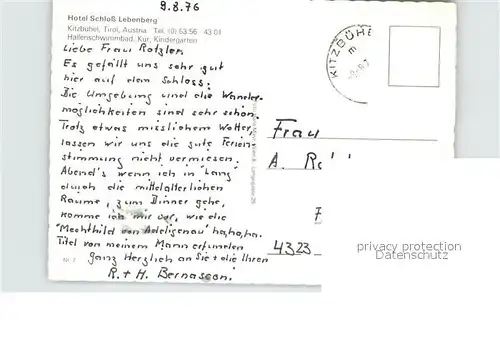 9.8.76
Hotel Schloß Lebenberg
Kitzbühel, Tirol, Austria Tel. (0) 53 56 43 01
Hallenschwimmbad, Kur, Kindergarten
Liebe Frau Rotzler
Es gefällt uns sehr gut
hier auf dem Schloss.
Die Umgebung und die Wander-
möglichkeiten sind sehr schön.
Trotz etwas misslichem Wetter,
lassen wir uns die gute Ferien-
stimmung nicht vermiesen.
Abend's wenn ich in "Lang"
durch die mittelalterlichen
Räume, zum Dinner gehe,
komme ich mir vor, wie die
"Mechthild von Adeligenau" ha,ha,ha.
Titel von meinem Mann erfunden
Ganz Herzlich an Sie + die Ihren
R. + H. Bernasconi
KITZBÜHE
Frau
A. Ro
4323
privacy protection
Datenschutz